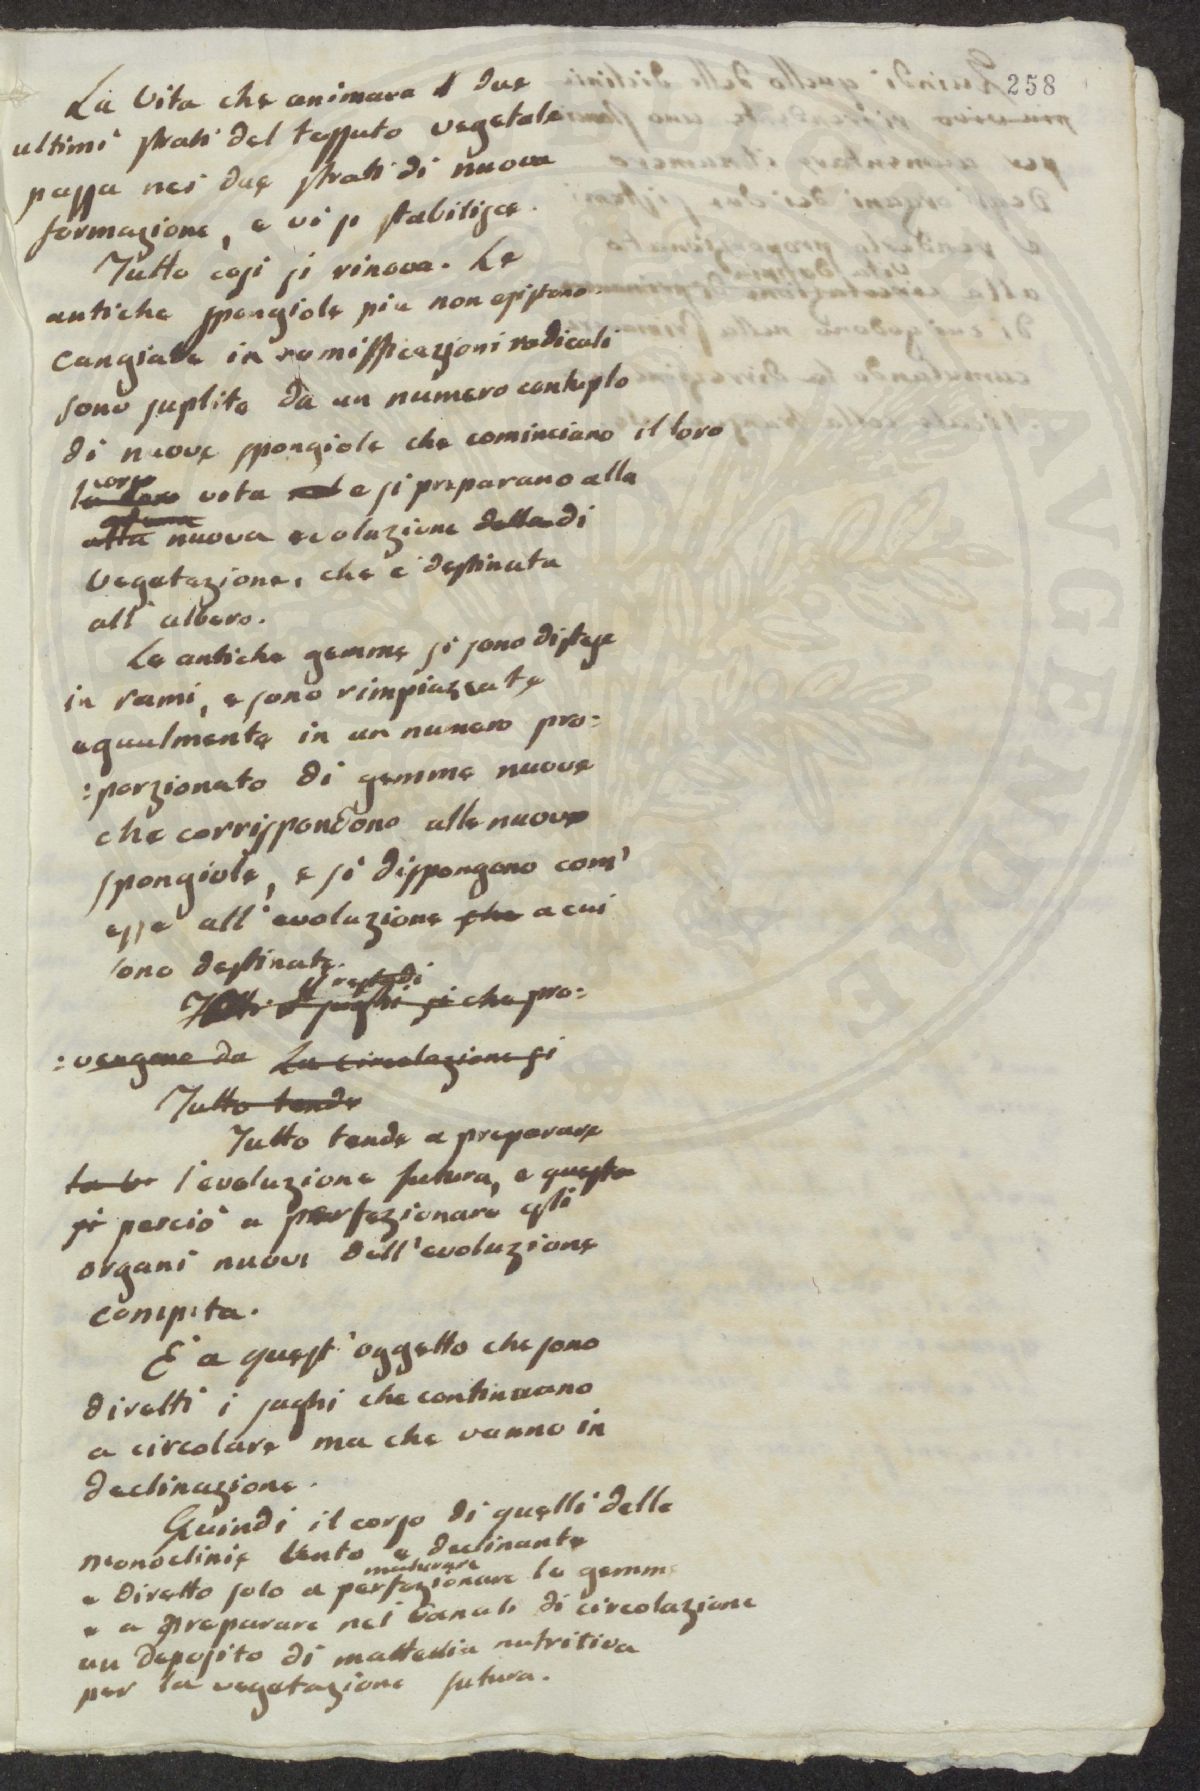 258
La vita che animava i due
ultimi strati del tessuto vegetale
passa nei due strati di nuova
formazione, e vi si stabilisce.
Tutto così si rinova. Le
antiche spongiole più non esistono
cangiate in ramifficazioni radicali
sono suplite da un numero centuplo
di nuove spongiole che cominciano il loro
corso
la loro vita e si preparano alla
alla nuova evoluzione della di
vegetazione, che è destinata
all'albero.
Le antiche gemme si sono distese
in rami, e sono rimpiazzate
egualmente in un numero pro=
=porzionato di gemme nuove
che corrispondono alle nuove
spongiole, e si dispongono com'
esse all'evoluzione che a cui
sono destinate.
Il resto di
Tutti i sughi si che pro=
=vengono da La circolazione si
Tutto tende
Tutto tende a preparare
la v l'evoluzione futura, e questa
si perciò a perfezionare gli
organi nuovi dell'evoluzione
compita.
È a quest'oggetto che sono
diretti i sughi che continuano
a circolare ma che vanno in
declinazione.
Quindi il corso di quelli delle
monoclinie lento e declinante
maturare
e diretto solo a perfezionare le gemme
e a preparare nei canali di circolazione
un deposito di matteria nutritiva
per la vegetazione futura.